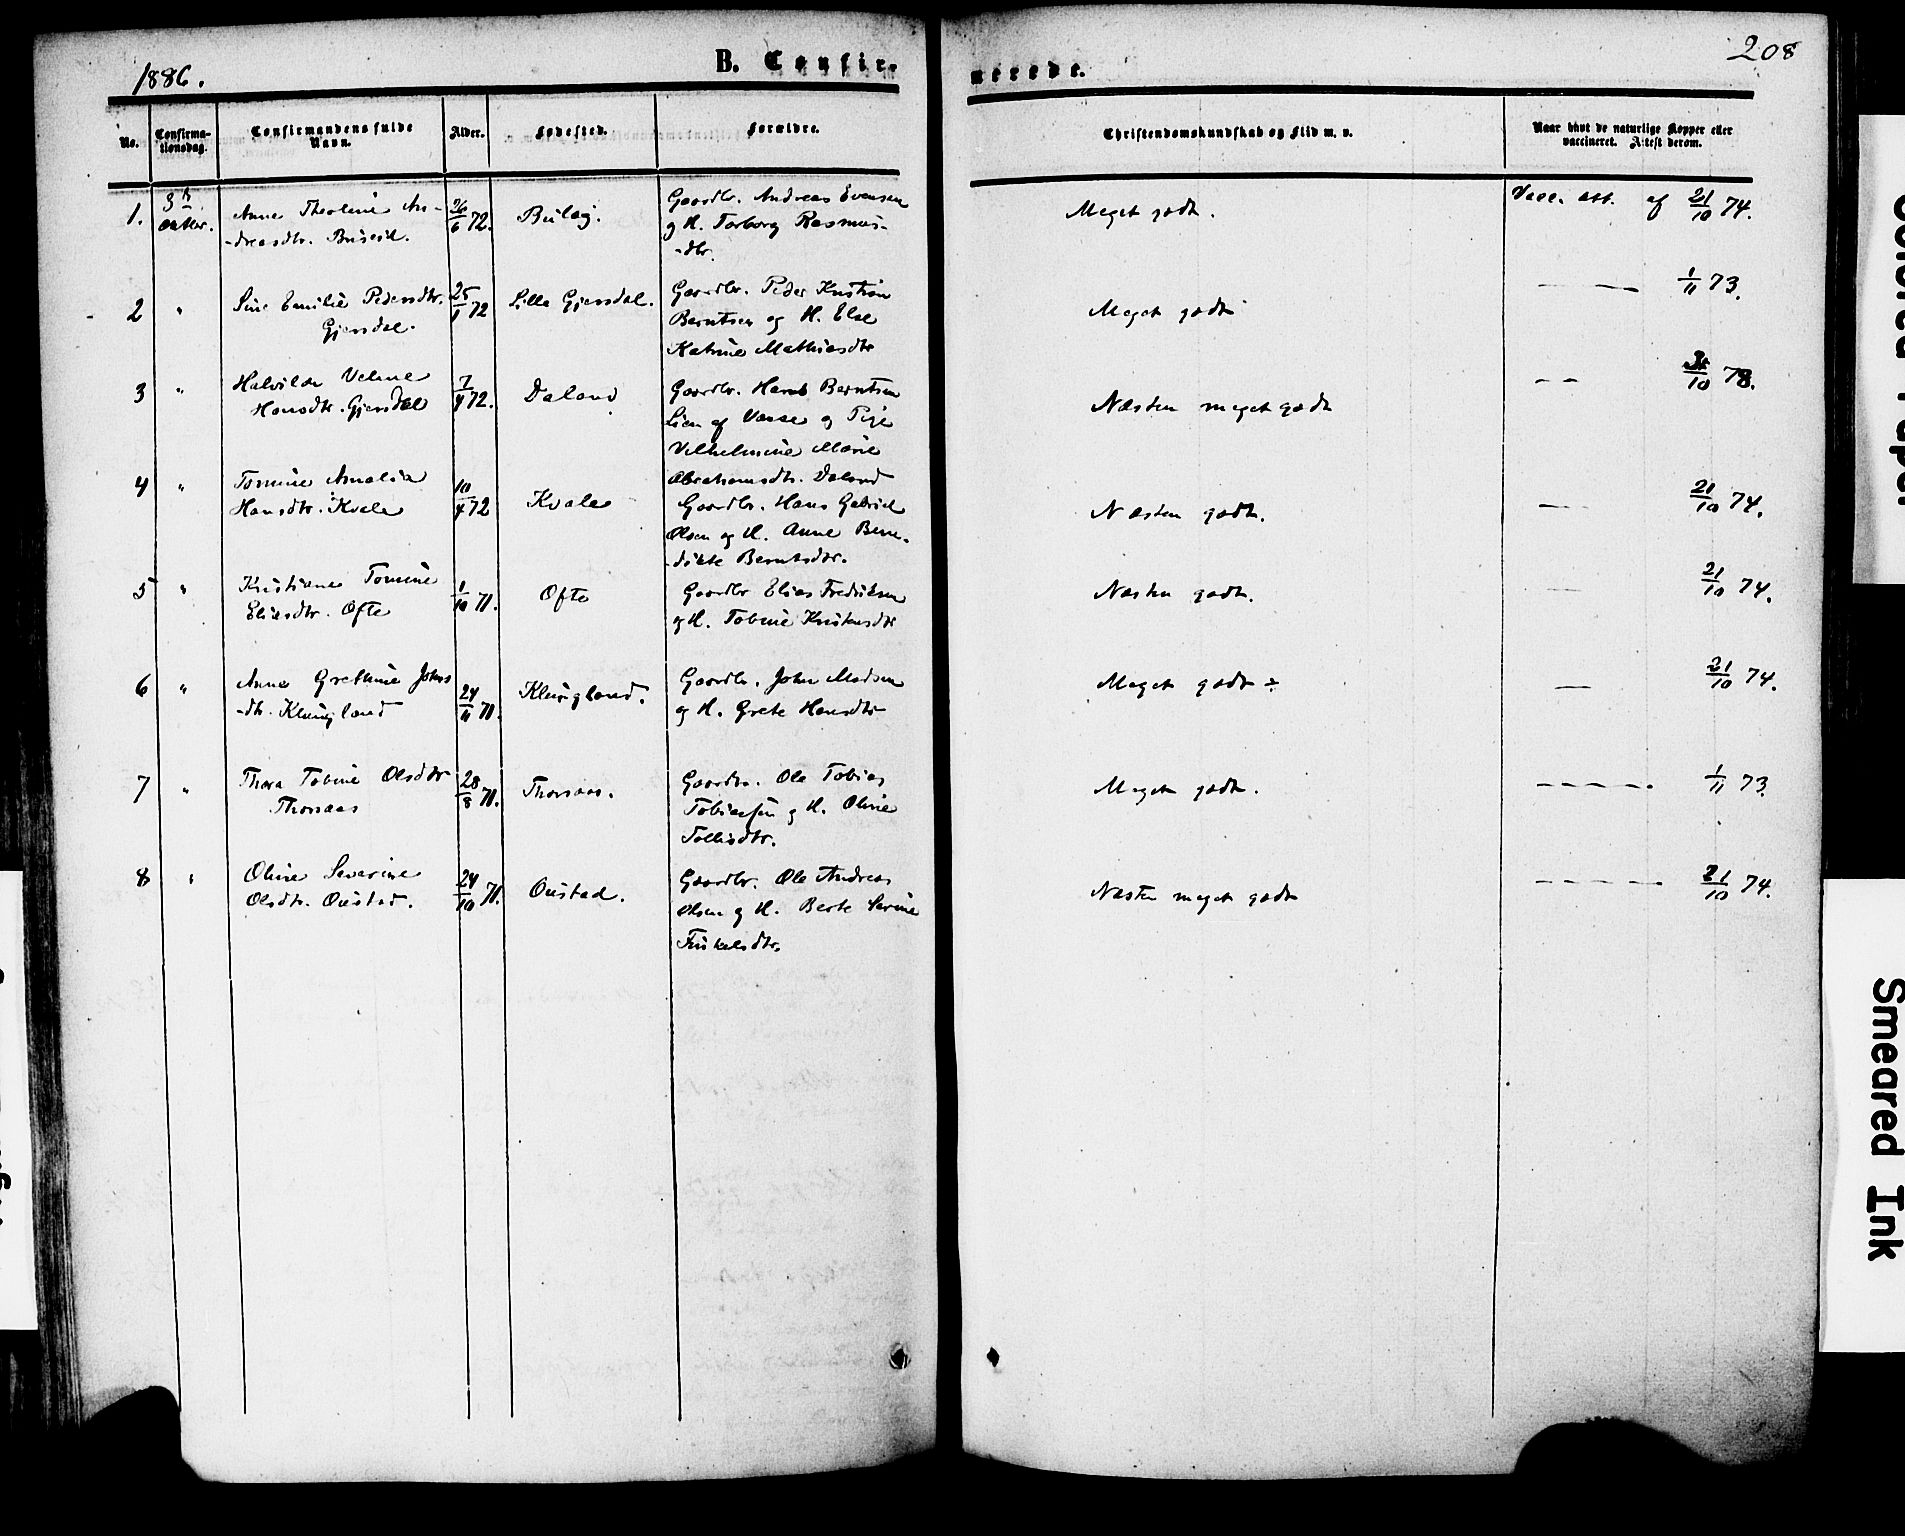 1886.
B. Confir-
merede.
208
No.
Confirma-
tionsdag.
Confirmandens fulde
Navn.
Alder.
Fødested.
Forældre.
Christendomskundskab og Flid m. v.
Naar havt de naturlige Kopper eller
vaccineret. Attest derom.
1.
3h
Oktbr.
Anne Theoline An-
-dreasdtr.
26/6 72.
Gaardbr. Andreas Evensen
og H. Torborg Rasmus-
-dtr.
Meget godt.
Vacc. att. af 21/10 74.
2 " Sine Emilie Pedersdtr.
Gjersdal.
25/1 72
Lille Gjersdal.
Gaardbr. Peder Kristian
Berntsen og H. Else
Katrine Mathiasdtr
Meget godt
— — 1/11 73.
3 "
Hansdtr. Gjersdal
7/4 72.
Daland
Gaardbr. Hans Berntsen
Lien af Vanse og Pige
Vilhelmine Marie
Abrahamsdtr. Daland
Næsten meget godt
— — /10 78.
4 " Tomine Amalia
Hansdtr. Kvale
10/4 72
Kvale
Gaardbr. Hans Gabriel
Olsen og H. Anne Bene-
-dikte Berntsdtr.
Næsten godt.
— — 21/10 74.
5 " Kristiane Tomine
Eliasdtr. Ofte
1/10 71.
Ofte
Gaardbr Elias Fredriksen
og H. Tobine Kristensdtr
Næsten godt.
— 21/10 74.
6 " Anne Grethine Johns
-dtr. Klungland
24/11 71.
Klungland.
Gaardbr. John Madsen
og H. Grete Hansdtr
Meget godt ÷
— 21/10 74.
7 " Thora Tobine Olsdtr
Thorsaas
28/8 71.
Thorsaas.
Gaardbr. Ole Tobias
Tobiassen og H. Oline
Tollisdtr.
Meget godt.
— — — — 1/11 73.
8 " Oline Severine
Olsdtr. Oustad.
24/10 71.
Oustad.
Gaardbr. Ole Andreas
Olsen og H. Berte Serine
Næsten meget godt
— — — — 21/10 74.
Smeared Ink